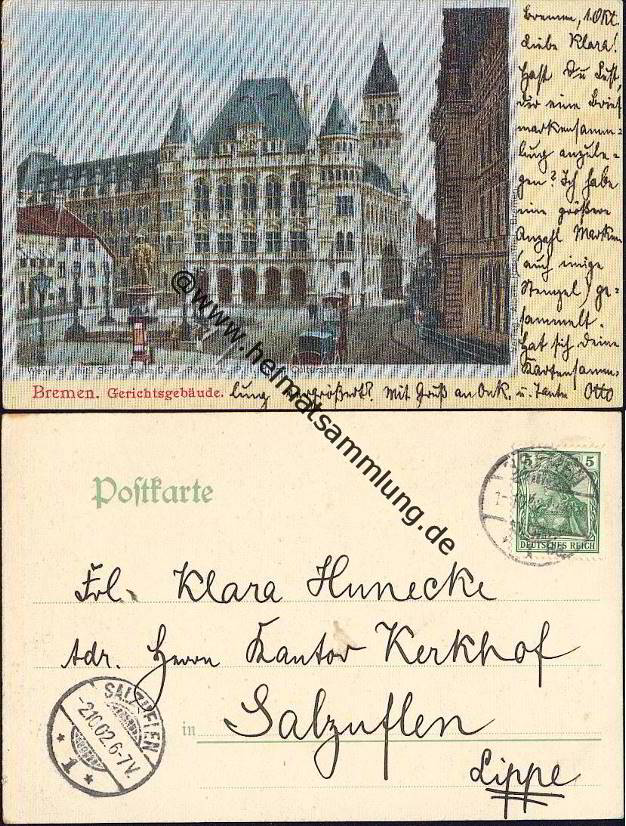 Bremen, 1. Okt.
Liebe Klara!
Hast Du Lust,
dir eine Brief
markensamm=
lung anzule=
gen? Ich habe
eine größere
Anzahl Marken
(auch einige
Stempel) ge=
sammelt.
Hat sich deine
Kartensamm=
lung vergrößert? Mit Gruß an Onk. u. Tante Otto
Bremen. Gerichtsgebäude.
@www.heimatsammlung.de
Postkarte
BREMEN
5 5
DEUTSCHES REICH
Frl. Klara Hunecke
Adr. Herrn Kantor Kerkhof
in Salzuflen
Lippe
SALZUFLEN
-2.10.02.6-7V.
* 1 *